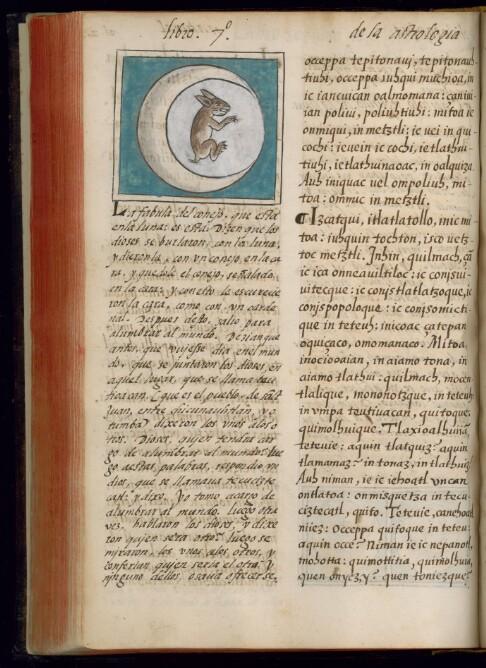 libro. 7.º
de la astrologia
La fabula, del conejo, que esta
en la luna: es esta. Dizen que los
dioses se burlaron, con la luna,
y dieronla, con vn conejo, en la ca
ra. y quedole el conejo, señalado,
en la cara: y con esto la escurecie
ron la cara, como con vn carde
nal. Despues desto, salio para
alumbrar al mundo. Dezian que
antes, que vujesse dia en el mun
do, que se juntaron los dioses, en
aquel lugar, que se llama teu
tioacan. (que es el pueblo, de san
Juan, entre chicunauhtlan, y o
tumba) dixeron los vnos a los o
tros. Dioses, quien tendra car
go de alumbrar al mundo. lue
go a estas palabras, respondio vn
dios, que se llamaua tecuciste
catl: y dixo. yo tomo a cargo de
alumbrar al mundo. luego otra
vez, hablaron los dioses, y dixe
ron quien sera otro? luego se
miraron, los vnos a los otros, y
conferian quien seria el otro. y
ninguno dellos, osaua ofrecerse,
occeppa tepitonauj, tepitonauh
tiuhi, occeppa iuhqui muchioa, in
ic iancuican oalmomana: çaniui
ian poliui, poliuhtiuh: mitoa ie
onmiqui, in metztli: ie uei in qui
cochi: ieuein ic cochi, ie tlathui
tiuhi, ie tlathuinaoac, in oalquiza
Auh iniquac uel ompoliuh, mi
toa: ommic in metztli.
Izcatqui, itlatlatollo, inic mi
toa: iuhquin tochton, isco uetz
toc metztli. Inhin, quilmach, ça
ic ica onneauiltiloc: ic conjsui
uitecque: ic conjstlatlatzoque, ic
conjspopoloque: ic conjsomicti
que in teteuh: inicoac çatepan
oquiçaco, omomanaco. Mitoa
inociooaian, in aiamo tona, in
aiamo tlathui: quilmach, mocen
tlalique, mononotzque, in teteuh
in vmpa teutiuacan, quitoque,
quimolhuique. Tlaxioalhuiã,
teteuie: aquin tlatquiz? aquin
tlamamaz? in tonaz, in tlathuiz?
Auh niman, ie ic iehoatl vncan
ontlatoa: onmisquetza in tecu
ciztecatl, quito. Teteuie, canehoatl
niez: Occeppa quitoque in teteu:
aquin occe? Niman ie ic nepanotl,
mohotta: quimottitia, quimolhuia,
quen onyez, y? quen toniezque?